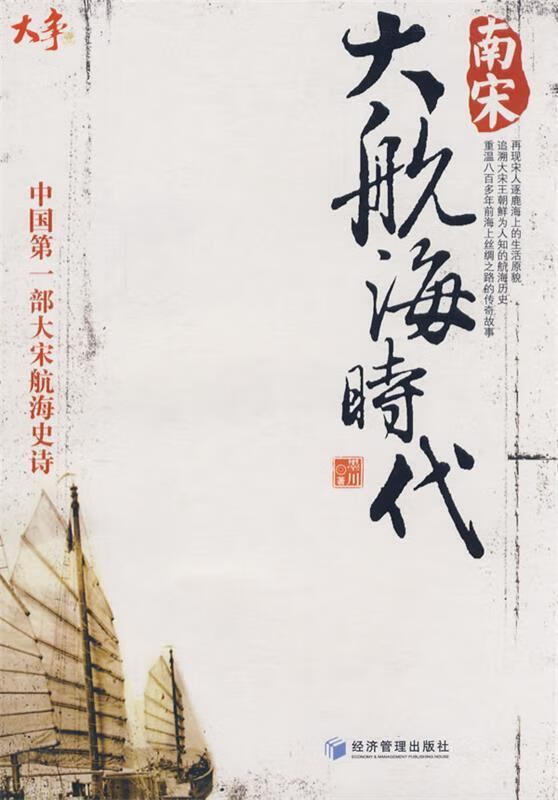 大争
南宋
大航海時代
再现宋人逐鹿海上的生活原貌
追溯大宋王朝鲜为人知的航海历史
重温八百多年前海上丝绸之路的传奇故事
中国第一部大宋航海史诗
墨川◎著
经济管理出版社
ECONOMY & MANAGEMENT PUBLISHING HOUSE